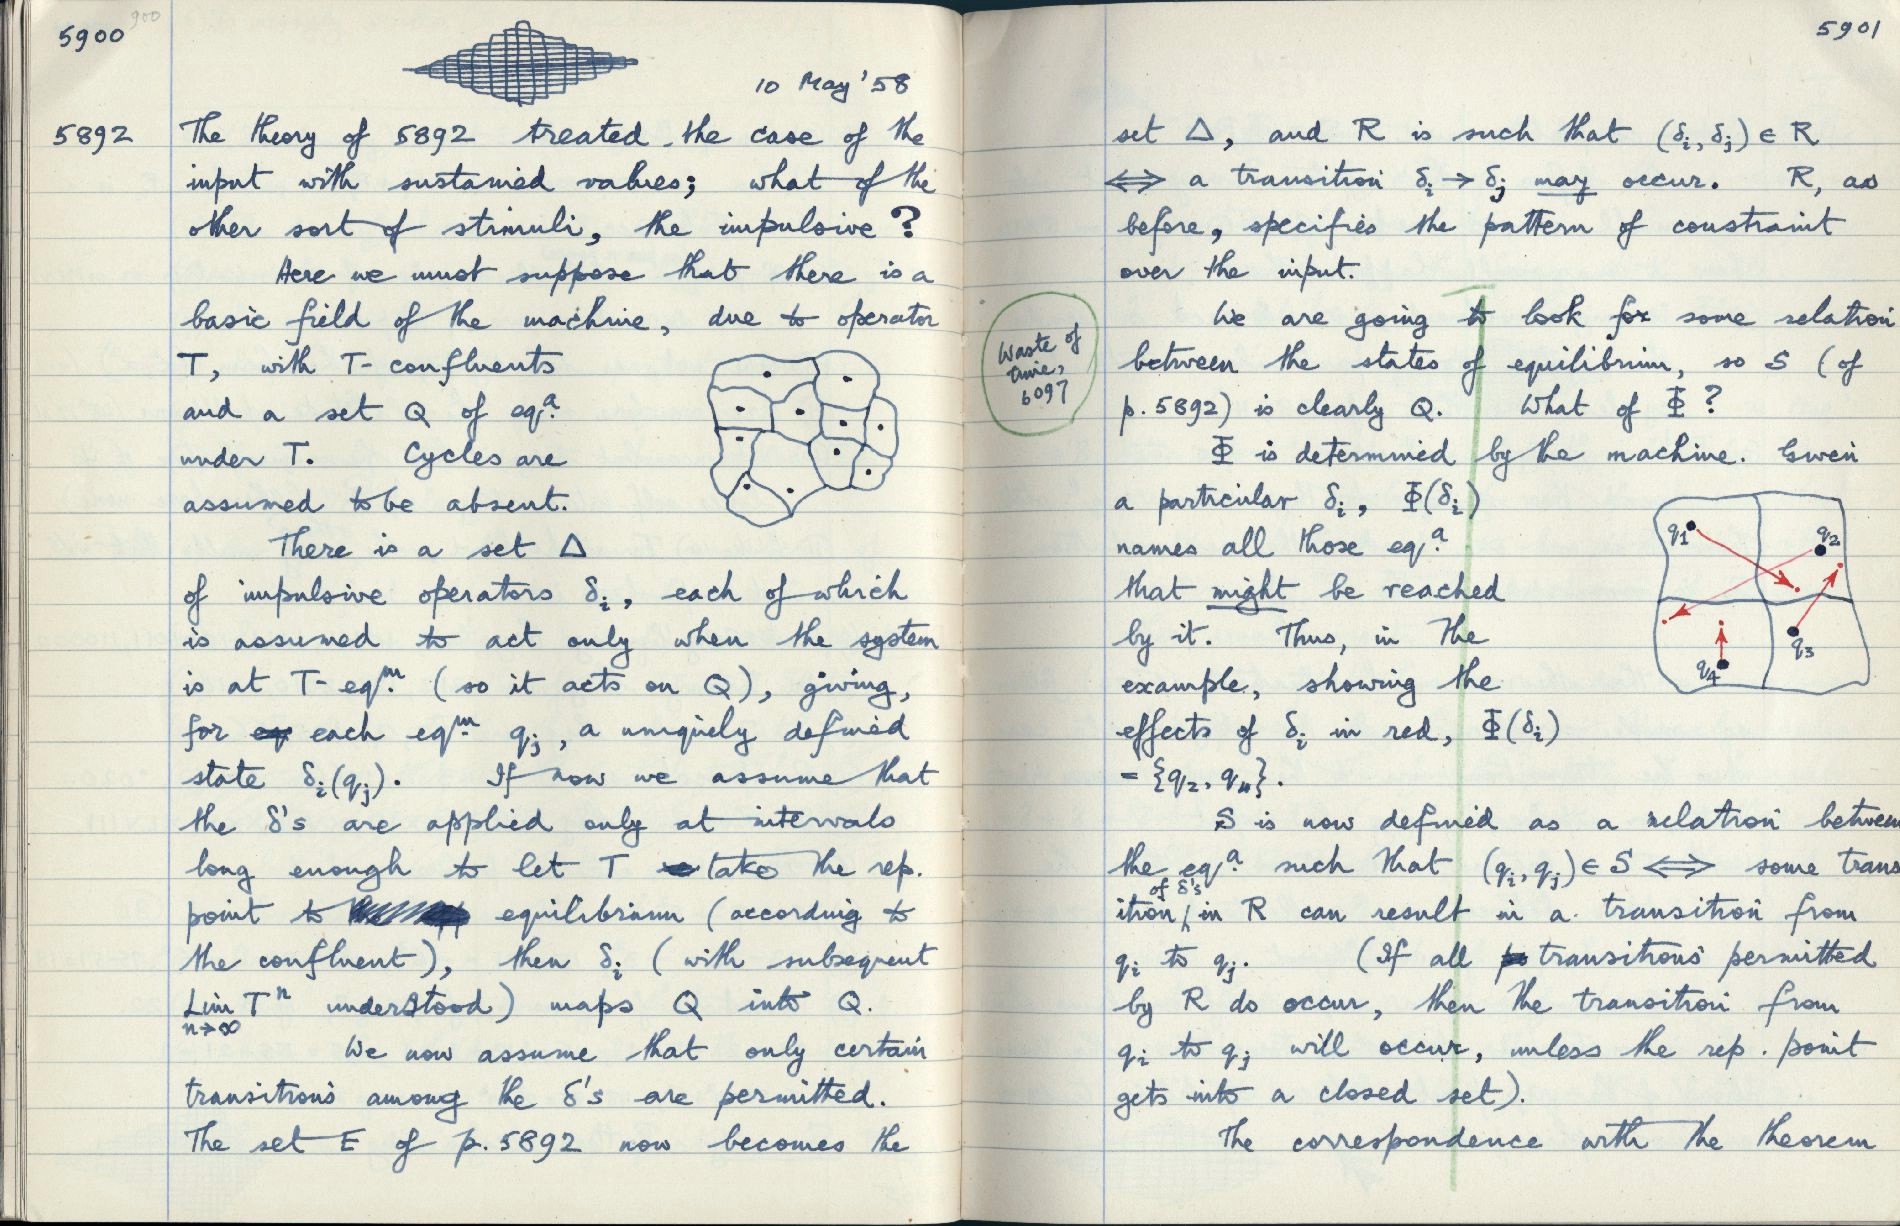 5900
900
10 May '58
5892
The theory of 5892 treated the case of the
input with sustained values; what of the
other sort of stimuli, the impulsive?
Here we must suppose that there is a
basic field of the machine, due to operator
T, with T-confluents
and a set Q of eqa.
under T. Cycles are
assumed to be absent.
There is a set Δ
of impulsive operators δi, each of which
is assumed to act only when the system
is at T-eqm. (so it acts on Q), giving,
for eq each eqm. qj, a uniquely defined
state δi(qj). If now we assume that
the δ's are applied only at intervals
long enough to let T take the rep.
point to equilibrium (according to
the confluent), then δi (with subsequent
Lim T^n understood) maps Q into Q.
n→∞
We now assume that only certain
transitions among the δ's are permitted.
The set E of p.5892 now becomes the
5901
set Δ, and R is such that (δi, δj) ∈ R
⟺ a transition δi → δj may occur. R, as
before, specifies the pattern of constraint
over the input.
We are going to look for some relation
between the states of equilibrium, so S (of
p.5892) is clearly Q. What of Φ?
Waste of
time,
6097
Φ is determined by the machine. Given
a particular δi, Φ(δi)
names all those eqa.
that might be reached
by it. Thus, in the
example, showing the
effects of δi in red, Φ(δi)
= {q2, q4}.
q1
q2
q3
q4
S is now defined as a relation between
the eqa. such that (qi, qj) ∈ S ⟺ some trans
of δ's
ition in R can result in a transition from
qi to qj. (If all transitions permitted
by R do occur, then the transition from
qi to qj will occur, unless the rep. point
gets into a closed set).
The correspondence with the theorem